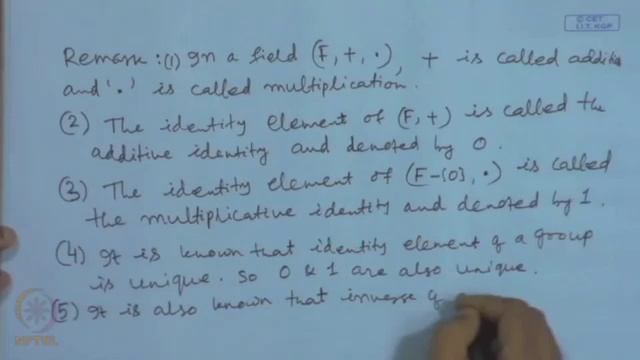 © CET
I.I.T. KGP
Remark : (1) In a field (F, +, ·), + is called addition
and '·' is called multiplication.
(2) The identity element of (F, +) is called the
additive identity and denoted by 0.
(3) The identity element of (F-{0}, ·) is called
the multiplicative identity and denoted by 1.
(4) It is known that identity element of a group
is unique. So 0 & 1 are also unique.
(5) It is also known that inverse of
NPTEL